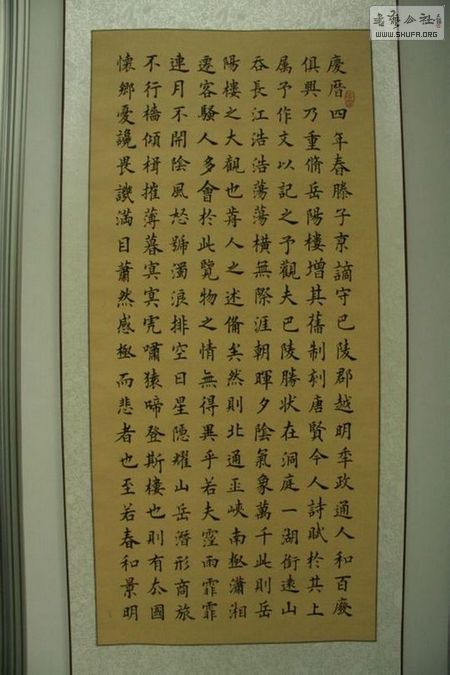 慶曆四年春滕子京謫守巴陵郡越明秊政通人和百廢
俱興乃重脩岳陽樓增其舊制刻唐賢今人詩賦於其上
属予作文以記之予觀夫巴陵勝状在洞庭一湖銜遠山
吞長江浩浩蕩蕩橫無際涯朝暉夕陰氣象萬千此則岳
陽樓之大觀也前人之述備矣然則北通巫峽南極瀟湘
遷客騷人多會於此覽物之情無得異乎若夫霪雨霏霏
連月不開陰風怒號濁浪排空日星隱耀山岳潛形商旅
不行檣傾楫摧薄暮冥冥虎嘯猿啼登斯樓也則有去國
懷鄉憂讒畏譏滿目蕭然感極而悲者也至若春和景明
書藝公社
WWW.SHUFA.ORG